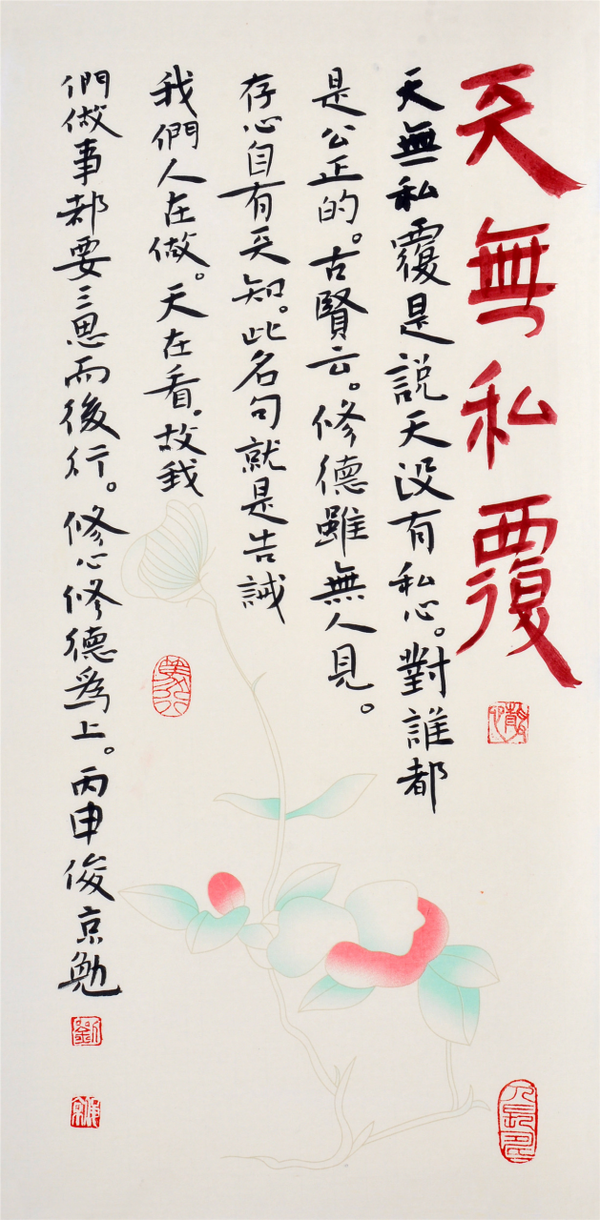 天無私覆
天無私覆是説天没有私心。對誰都
是公正的。古賢云。修德雖無人見。
存心自有天知。此名句就是告誡
我們人在做。天在看。故我
們做事都要三思而後行。修心修德為上。丙申俊京勉
劉